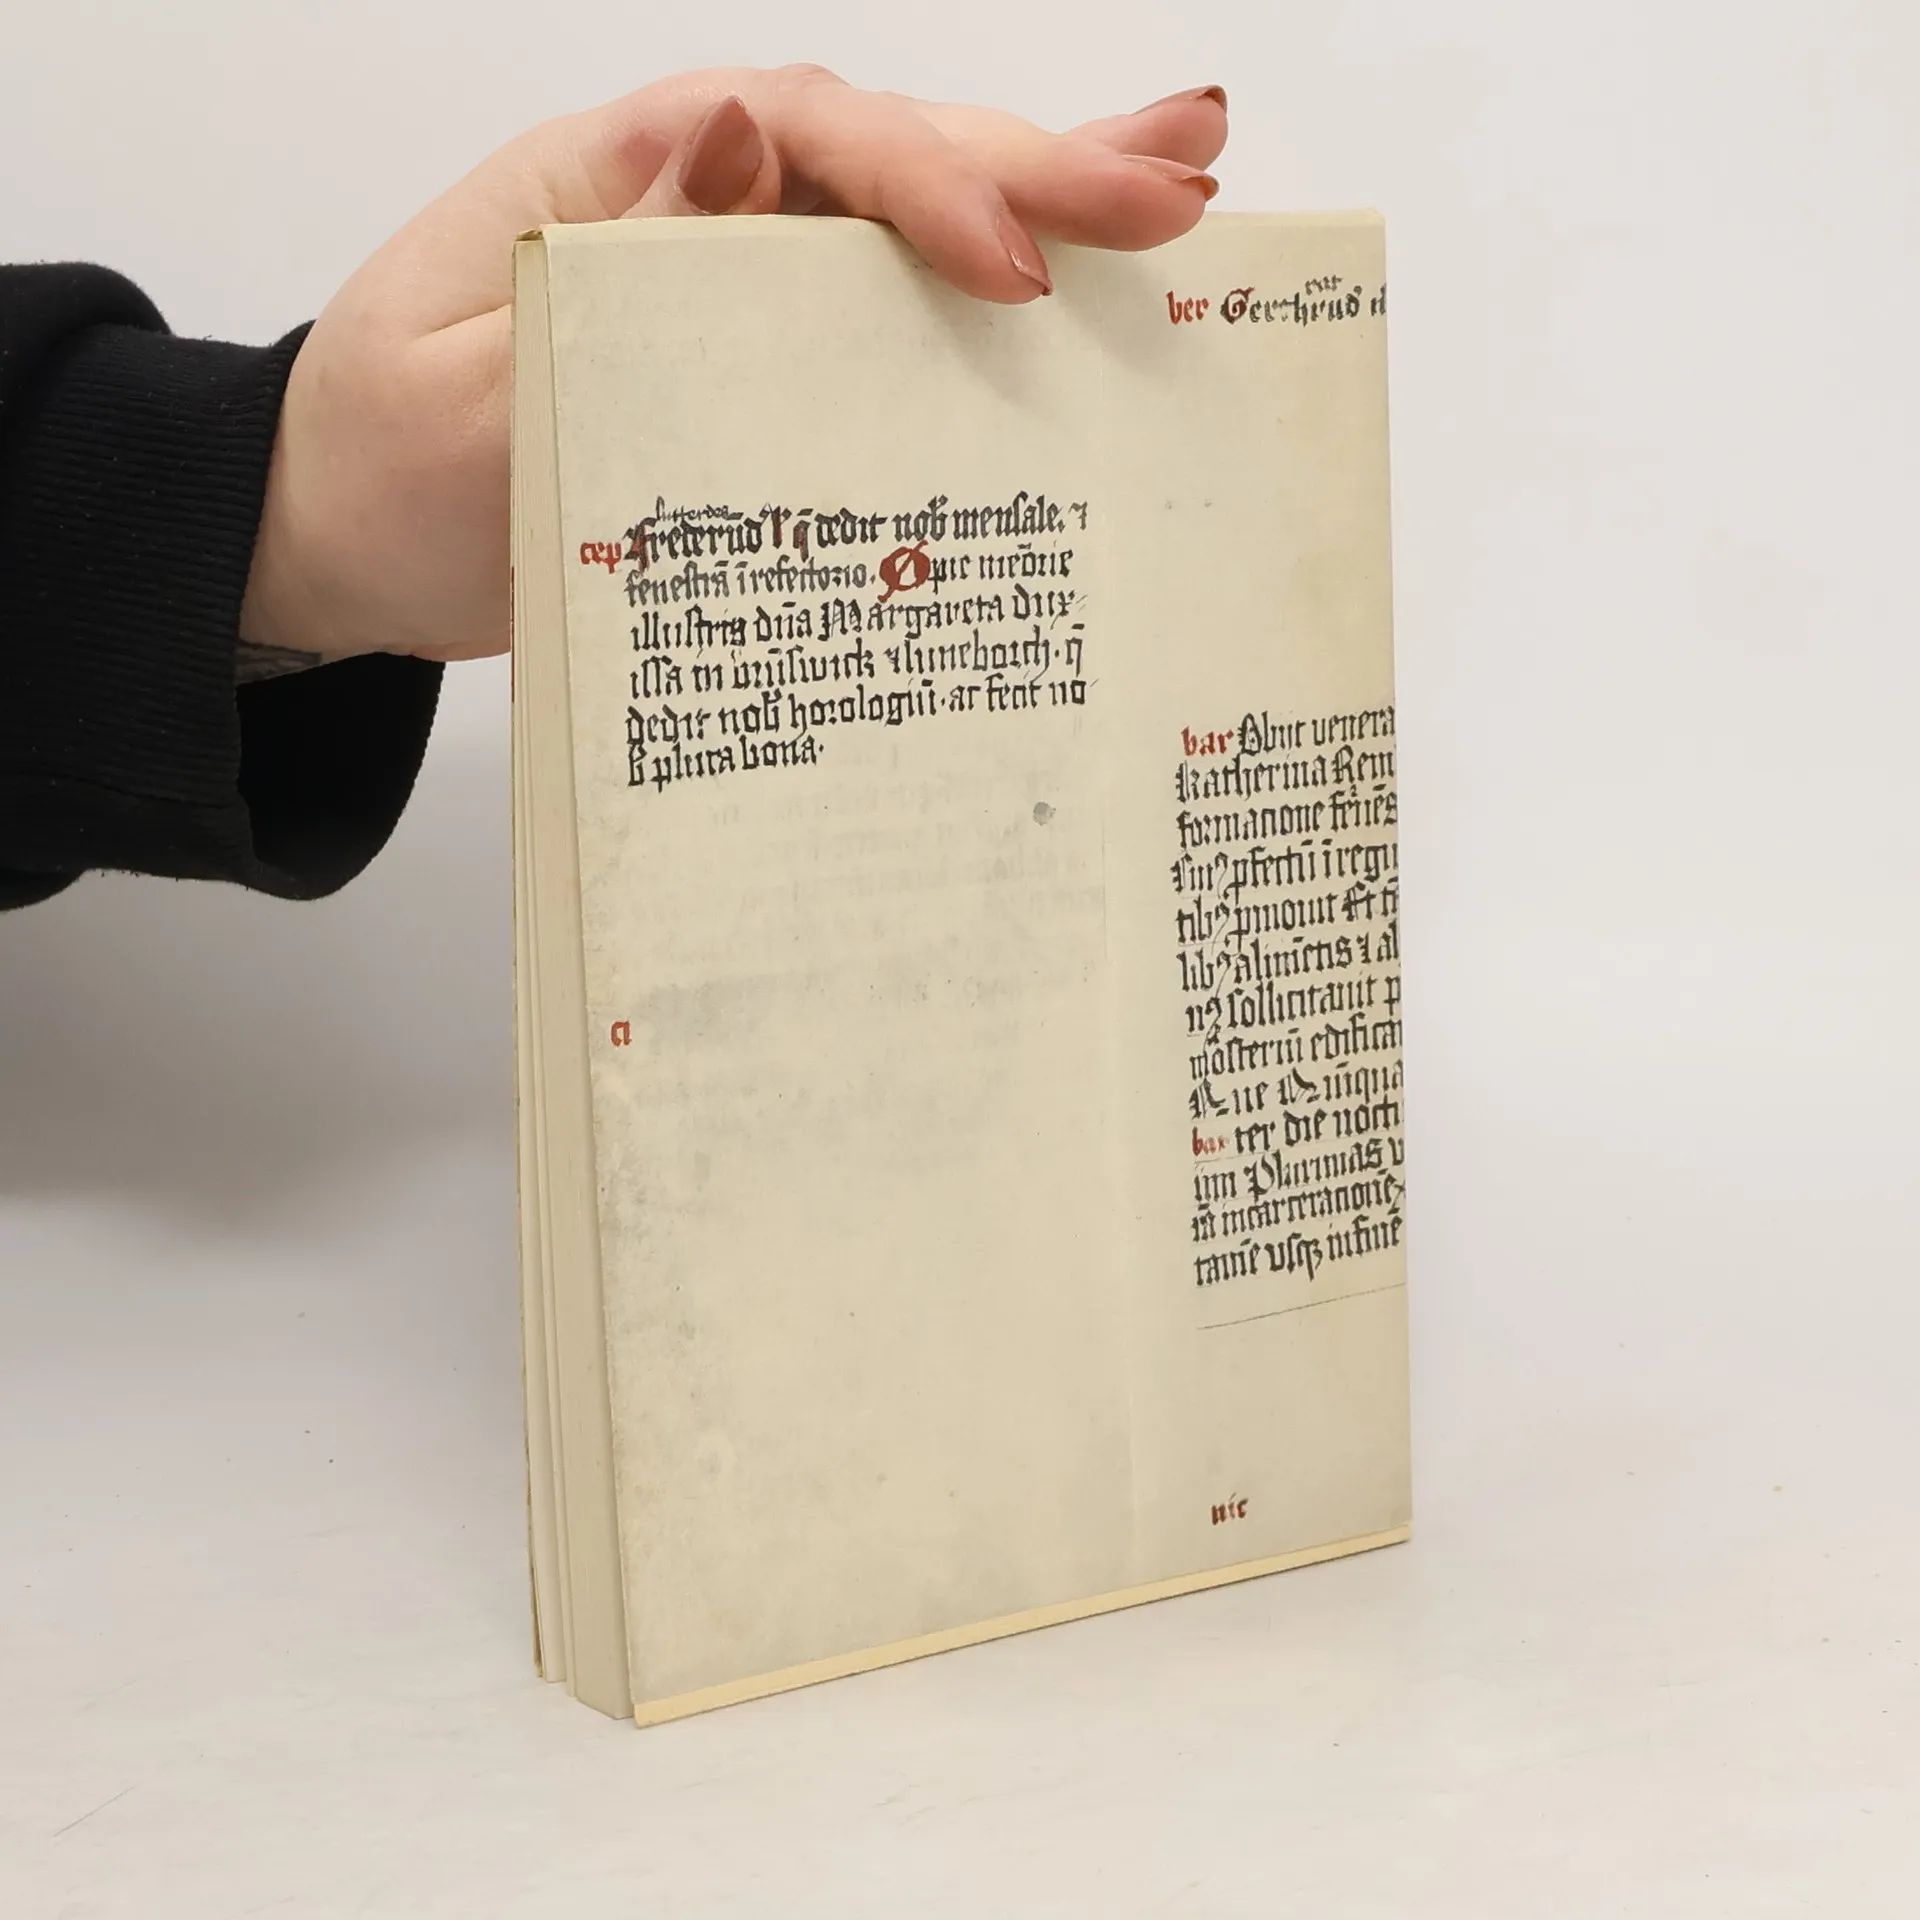 ber Gerthrud
cep Frederud q̄ dedit nob̄ mensale. ⁊
fenestrā ī refectorio. O pie meōrie
illustris dn̄a Margareta dux-
issa in brūswick ⁊ luneborch. q̄
dedit nob̄ horologiū. ac fecit no-
b̄ plura bona.
ci
bar Obiit venera
Katherina Rem
formacione
ꝑfectū ī regu
ꝓmouit Et
alimētis ⁊ al
sollicitauit p
mōsteriū edifica
bar ter die noctu
im Plurimas v
incarceracione
usqꝫ in finē
nic